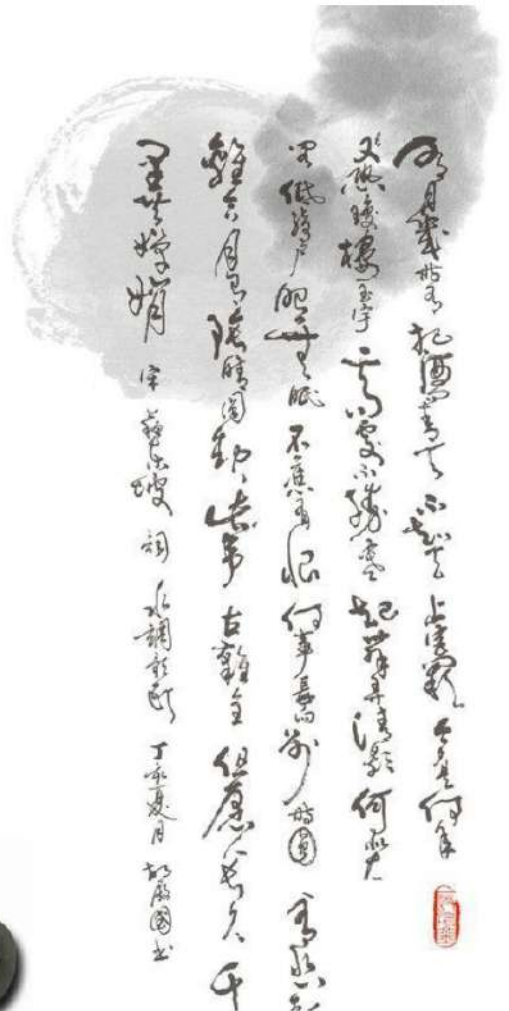 明月幾時有 把酒問青天 不知天上宮闕 今夕是何年
又恐瓊樓玉宇 高處不勝寒 起舞弄清影 何似在
低綺戶 照無眠 不應有恨 何事長向別時圓 人有悲歡
離合 月有陰晴圓缺 此事古難全 但願人長久 千
里共嬋娟 宋 蘇東坡 詞 水調歌頭 丁亥夏月 國書